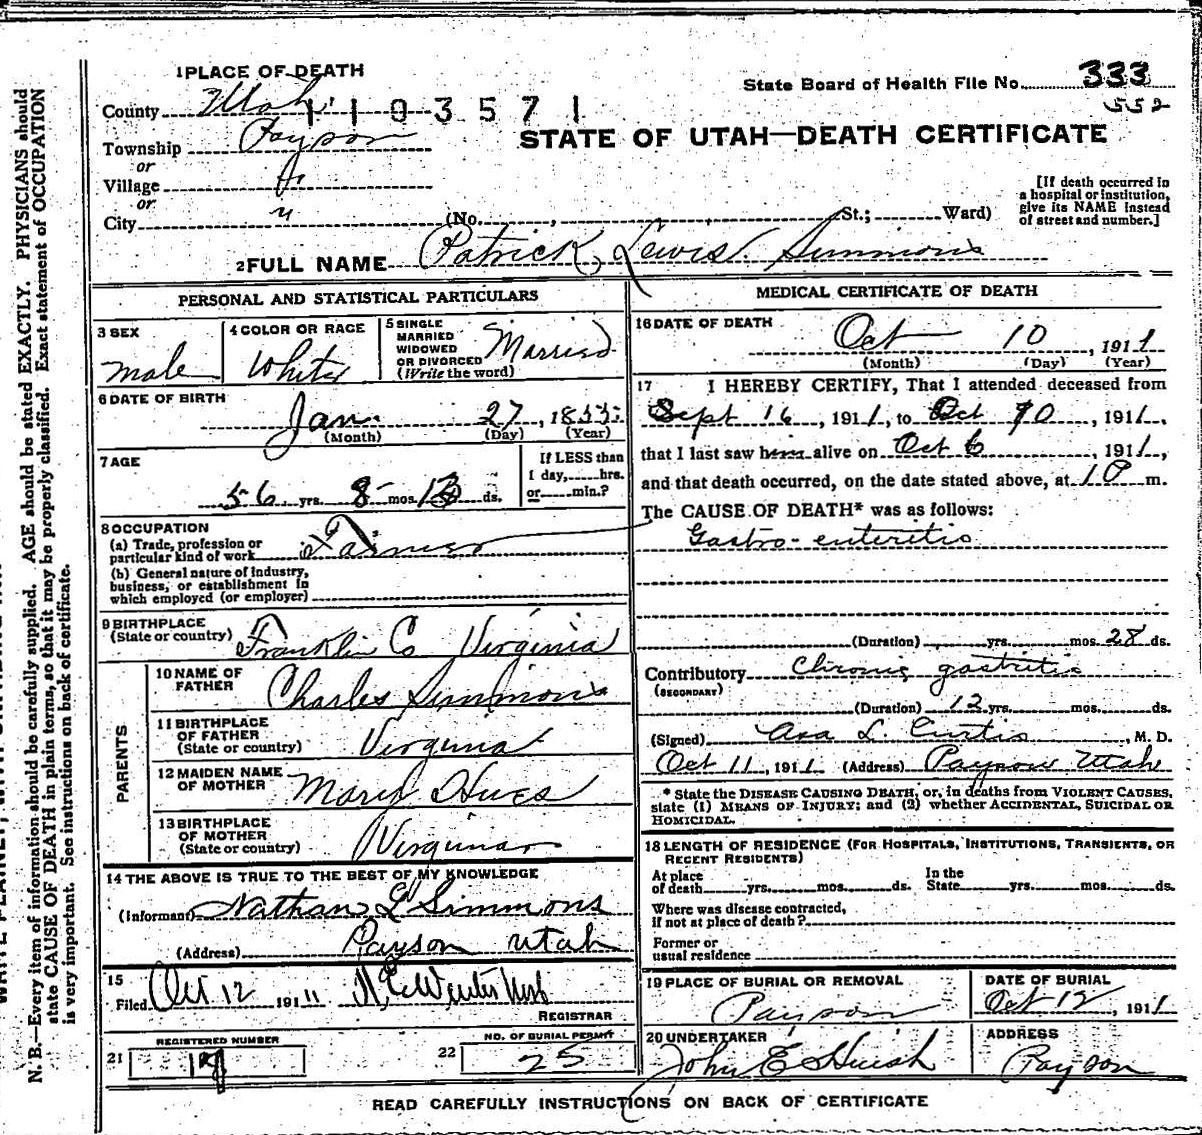 1 PLACE OF DEATH
State Board of Health File No. 333
552
County Utah
1103571
Township Payson
STATE OF UTAH—DEATH CERTIFICATE
or
Village "
or
City "
(No. , St.; Ward)
[If death occurred in a hospital or institution, give its NAME instead of street and number.]
2 FULL NAME Patrick Lewis Simmons
PERSONAL AND STATISTICAL PARTICULARS
3 SEX
male
4 COLOR OR RACE
White
5 SINGLE MARRIED WIDOWED OR DIVORCED (Write the word)
Married
6 DATE OF BIRTH
Jan. 27, 1855
(Month) (Day) (Year)
7 AGE
56 yrs. 8 mos. 13 ds.
If LESS than 1 day, hrs. or min.?
8 OCCUPATION
(a) Trade, profession or particular kind of work Farmer
(b) General nature of industry, business, or establishment in which employed (or employer)
9 BIRTHPLACE (State or country) Franklin Co Virginia
PARENTS
10 NAME OF FATHER Charles Simmons
11 BIRTHPLACE OF FATHER (State or country) Virginia
12 MAIDEN NAME OF MOTHER Mary
13 BIRTHPLACE OF MOTHER (State or country) Virginia
14 THE ABOVE IS TRUE TO THE BEST OF MY KNOWLEDGE
(Informant) Nathan L Simmons
(Address) Payson Utah
15
Filed Oct 12 1911
REGISTRAR
21 REGISTERED NUMBER
22 NO. OF BURIAL PERMIT
25
MEDICAL CERTIFICATE OF DEATH
16 DATE OF DEATH
Oct 10, 1911
(Month) (Day) (Year)
17 I HEREBY CERTIFY, That I attended deceased from
Sept 16, 1911, to Oct 10, 1911,
that I last saw him alive on Oct 6, 1911,
and that death occurred, on the date stated above, at 1 P m.
The CAUSE OF DEATH* was as follows:
Gastro-enteritis
(Duration) yrs. mos. 28 ds.
Contributory Chronic gastritis
(SECONDARY)
(Duration) 12 yrs. mos. ds.
(Signed) Asa L. Curtis, M. D.
Oct 11, 1911 (Address) Payson Utah
* State the DISEASE CAUSING DEATH, or, in deaths from VIOLENT CAUSES, state (1) MEANS OF INJURY; and (2) whether ACCIDENTAL, SUICIDAL OR HOMICIDAL.
18 LENGTH OF RESIDENCE (FOR HOSPITALS, INSTITUTIONS, TRANSIENTS, OR RECENT RESIDENTS)
At place of death yrs. mos. ds.
In the State yrs. mos. ds.
Where was disease contracted, if not at place of death?
Former or usual residence
19 PLACE OF BURIAL OR REMOVAL
Payson
DATE OF BURIAL
Oct 12, 1911
20 UNDERTAKER
John E Huish
ADDRESS
Payson
READ CAREFULLY INSTRUCTIONS ON BACK OF CERTIFICATE
N. B.—Every item of information should be carefully supplied. AGE should be stated EXACTLY. PHYSICIANS should
state CAUSE OF DEATH in plain terms, so that it may be properly classified. Exact statement of OCCUPATION
is very important. See instructions on back of certificate.